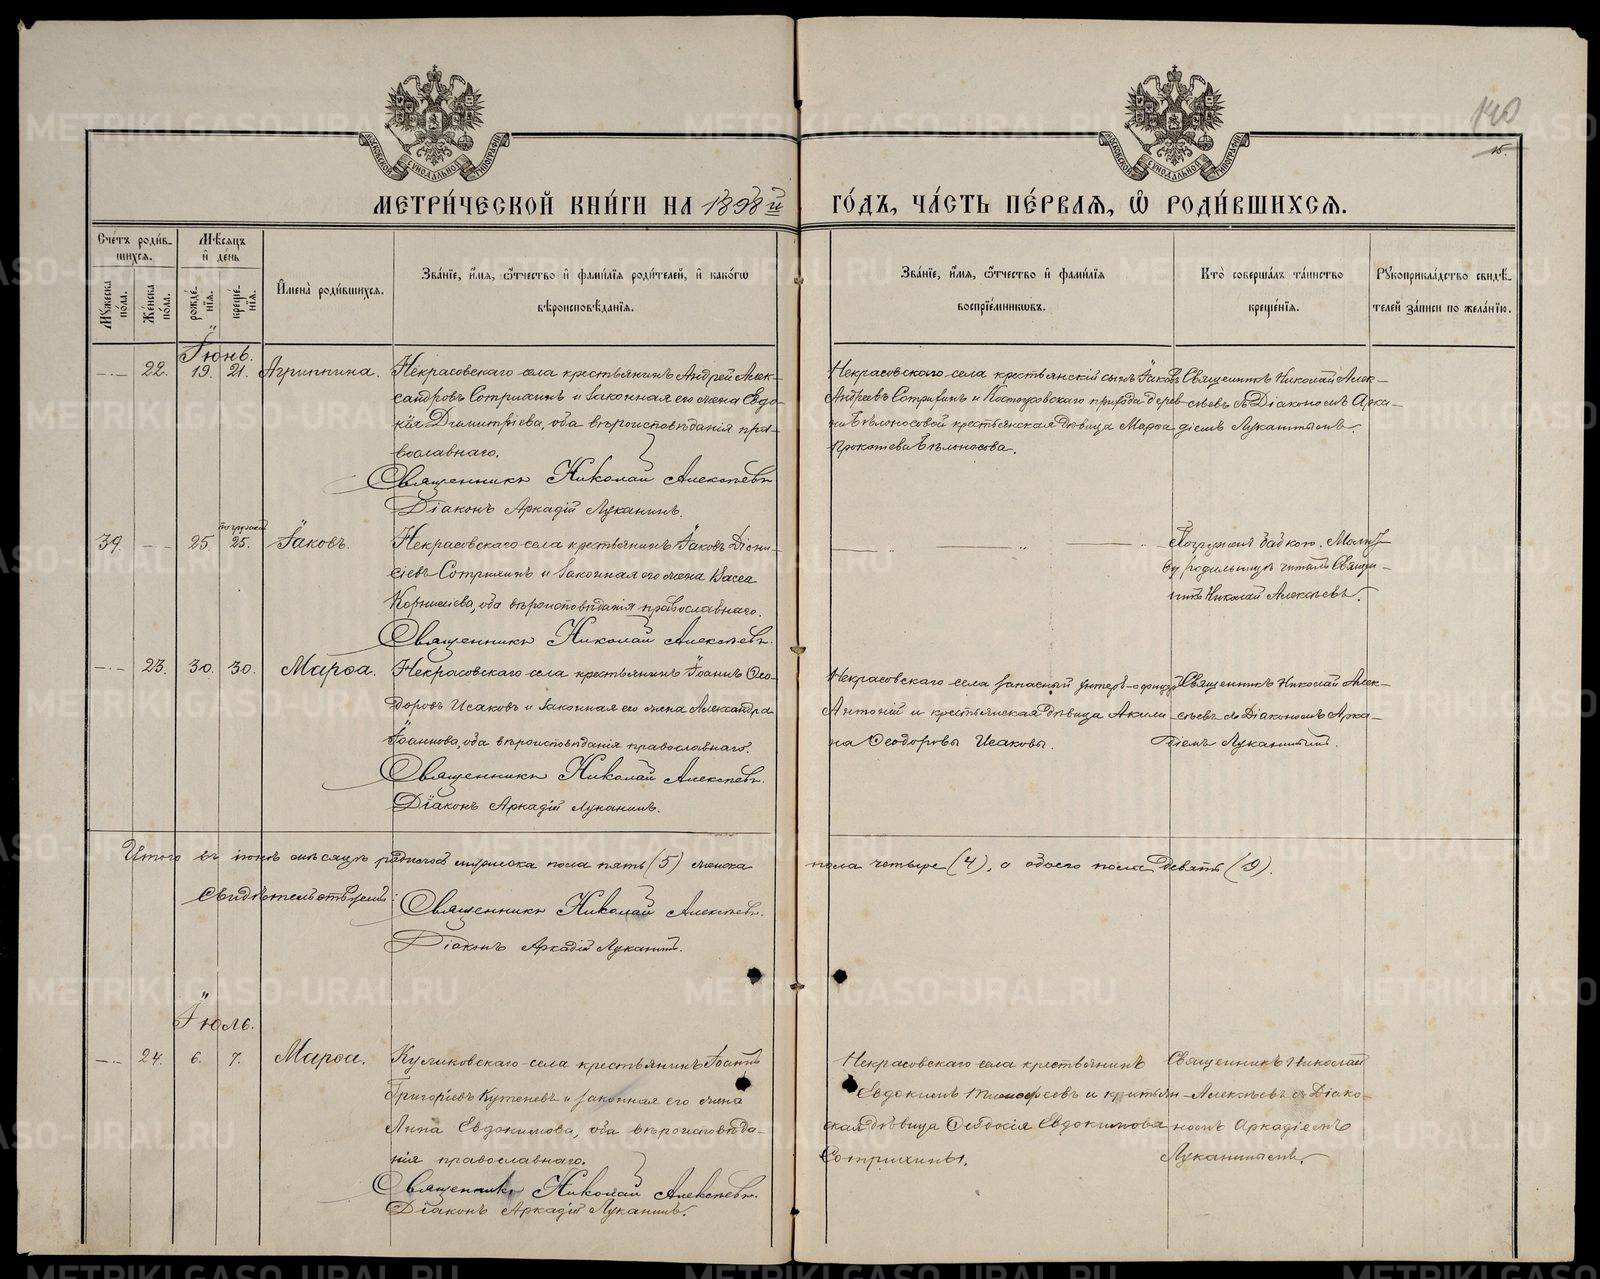 140
15.
МОСКОВСКОЙ СѴНОДАЛЬНОЙ ТИПОГРАФІИ
МОСКОВСКОЙ СѴНОДАЛЬНОЙ ТИПОГРАФІИ
МЕТРИ́ЧЕСКОЙ КНИ́ГИ НА 1898й ГО́ДЪ, ЧА́СТЬ ПЕ́РВАЯ, Ѡ РОДИ́ВШИХСЯ.
Сче́тъ роди́в-
шихся.
Мꙋ́жеска по́ла.
Же́нска по́ла.
Мѣ́сяцъ и де́нь
рожде́нїя.
креще́нїя.
И҆мена̀ роди́вшихся.
Зва́нїе, и҆́мя, ѻ҆́тчество и҆ фами́лїя роди́телей, и҆ како́гѡ
вѣроисповѣ́данїя.
Зва́нїе, и҆́мя, ѻ҆́тчество и҆ фами́лїя
воспрїе́мникѡвъ.
Кто̀ соверша́лъ та́инство
креще́нїя.
Рꙋкоприкла́дство свидѣ́-
телей за́писи по жела́нїю.
Іюнь.
— 22. 19. 21. Агриппина.
Некрасовскаго села крестьянинъ Андрей Алек-
сандровъ Сотрихинъ и законная его жена Евдо-
кія Димитріева, оба вѣроисповѣданія пра-
вославнаго.
Священникъ Николай Алексѣевъ
Діаконъ Аркадій Луканинъ.
Некрасовскаго села крестьянскій сынъ Іаковъ
Андреевъ Сотрихинъ и прихода дерев-
ни Бѣлоносовой крестьянская дѣвица Марѳа
Прокопіева Бѣлоносова.
Священникъ Николай Алек-
сѣевъ съ Діакономъ Арка-
діемъ Луканинымъ.
39. — 25. погруженъ 25. Іаковъ.
Некрасовскаго села крестьянинъ Іаковъ Діони-
сіевъ Сотрихинъ и законная его жена Васса
Корниліева, оба вѣроисповѣданія православнаго.
Священникъ Николай Алексѣевъ.
— „ — — „
Погруженъ бабкою. Молит-
ву родильницѣ читалъ Священ-
никъ Николай Алексѣевъ.
— 23. 30. 30. Марѳа.
Некрасовскаго села крестьянинъ Іоаннъ Ѳео-
доровъ Исаковъ и законная его жена Александра
Іоаннова, оба вѣроисповѣданія православнаго.
Священникъ Николай Алексѣевъ.
Діаконъ Аркадій Луканинъ.
Некрасовскаго села запасный унтеръ-офицеръ
Антоній и крестьянская дѣвица Акили-
на Ѳеодоровы Исаковы.
Священникъ Николай Алек-
сѣевъ съ Діакономъ Арка-
діемъ Луканинымъ.
Итого въ іюнѣ мѣсяцѣ родилось мужеска пола пять (5) женска пола четыре (4), а обоего пола девять (9).
Свидѣтельствуемъ:
Священникъ Николай Алексѣевъ.
Діаконъ Аркадій Луканинъ.
Іюль.
— 24. 6. 7. Марѳа.
Куликовскаго села крестьянинъ Іоаннъ
Григоріевъ Кутеневъ и законная его жена
Анна Евдокимова, оба вѣроисповѣда-
нія православнаго.
Священникъ Николай Алексѣевъ.
Діаконъ Аркадій Луканинъ.
Некрасовскаго села крестьянинъ
Евдокимъ Тимоѳеевъ и крестьян-
ская дѣвица Ѳеодосія Евдокимова
Сотрихины.
Священникъ Николай
Алексѣевъ съ Діако-
номъ Аркадіемъ
Луканинымъ.
METRIKI.GASO-URAL.RU